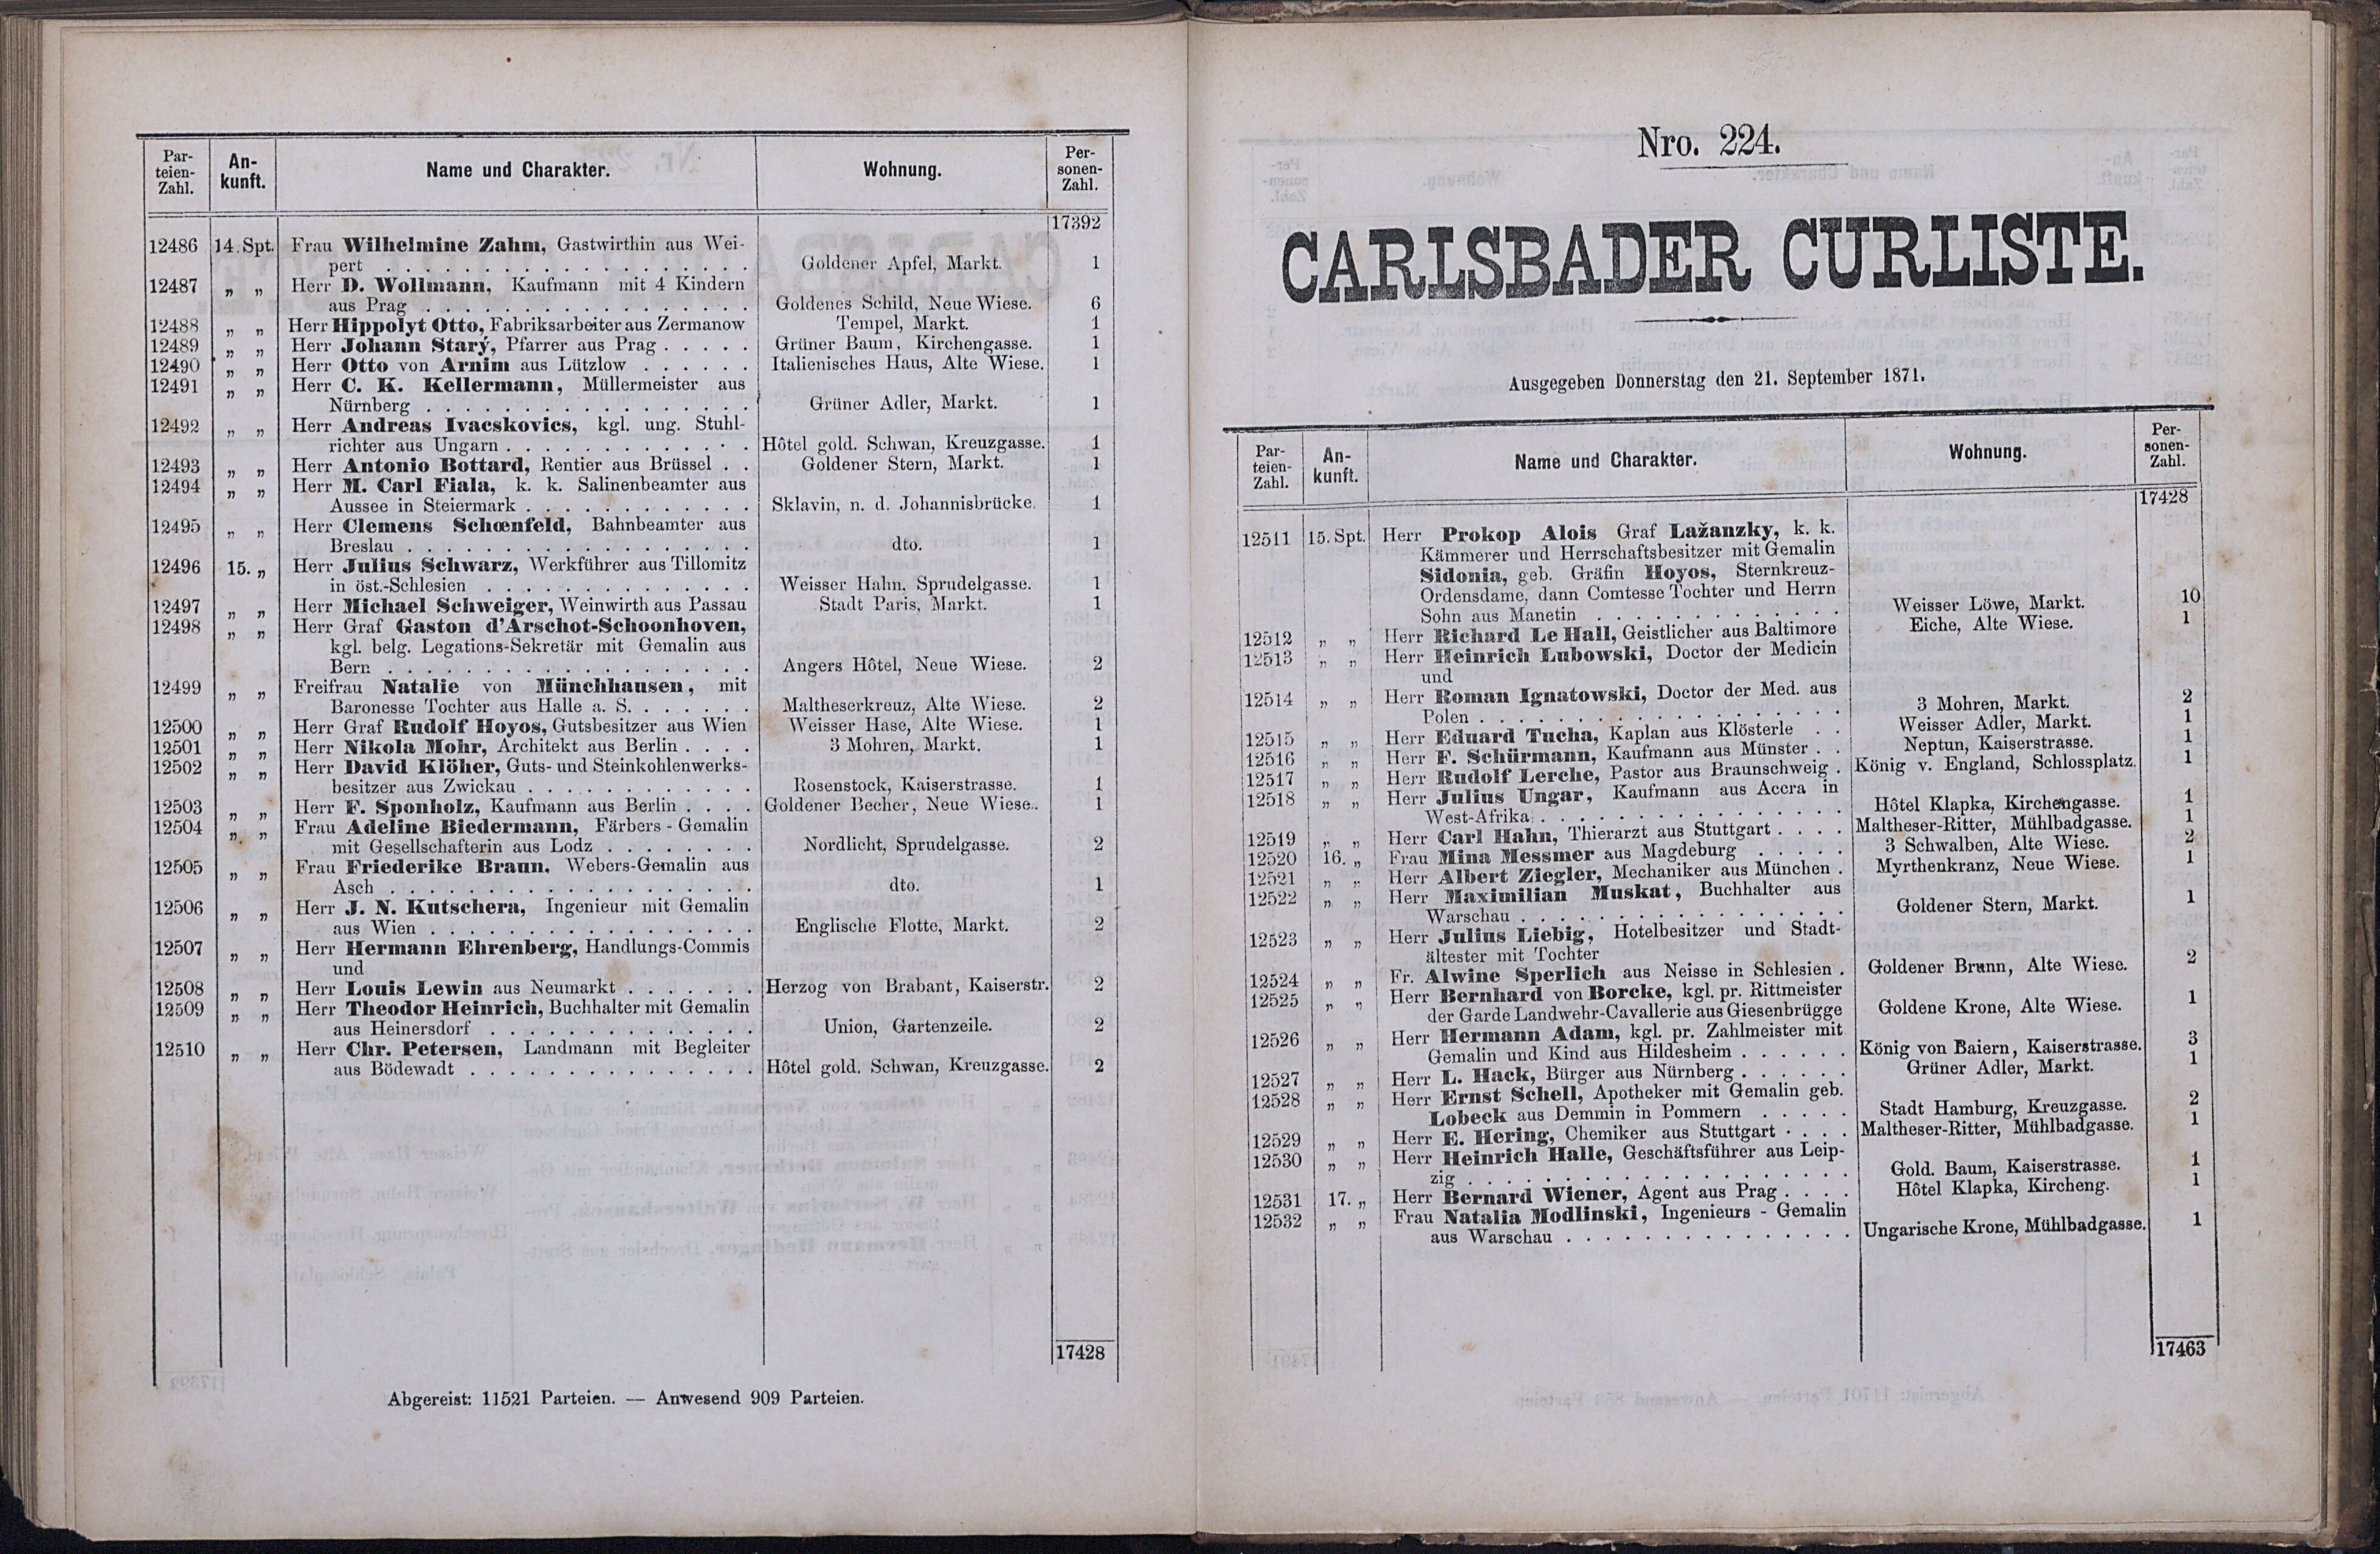 Par-teien-Zahl. An-kunft. Name und Charakter. Wohnung. Per-sonen-Zahl.
17392
12486 14. Spt. Frau Wilhelmine Zahm, Gastwirthin aus Wei-
pert . . . Goldener Apfel, Markt. 1
12487 „ „ Herr D. Wollmann, Kaufmann mit 4 Kindern
aus Prag . . . Goldenes Schild, Neue Wiese. 6
12488 „ „ Herr Hippolyt Otto, Fabriksarbeiter aus Zermanow Tempel, Markt. 1
12489 „ „ Herr Johann Starý, Pfarrer aus Prag . . . Grüner Baum, Kirchengasse. 1
12490 „ „ Herr Otto von Arnim aus Lützlow . . . Italienisches Haus, Alte Wiese. 1
12491 „ „ Herr C. K. Kellermann, Müllermeister aus
Nürnberg . . . Grüner Adler, Markt. 1
12492 „ „ Herr Andreas Ivacskovics, kgl. ung. Stuhl-
richter aus Ungarn . . . Hôtel gold. Schwan, Kreuzgasse. 1
12493 „ „ Herr Antonio Bottard, Rentier aus Brüssel . . Goldener Stern, Markt. 1
12494 „ „ Herr M. Carl Fiala, k. k. Salinenbeamter aus
Aussee in Steiermark . . . Sklavin, n. d. Johannisbrücke. 1
12495 „ „ Herr Clemens Schœnfeld, Bahnbeamter aus
Breslau . . . dto. 1
12496 15. „ Herr Julius Schwarz, Werkführer aus Tillomitz
in öst.-Schlesien . . . Weisser Hahn, Sprudelgasse. 1
12497 „ „ Herr Michael Schweiger, Weinwirth aus Passau Stadt Paris, Markt. 1
12498 „ „ Herr Graf Gaston d'Arschot-Schoonhoven,
kgl. belg. Legations-Sekretär mit Gemalin aus
Bern . . . Angers Hôtel, Neue Wiese. 2
12499 „ „ Freifrau Natalie von Münchhausen, mit
Baronesse Tochter aus Halle a. S. . . . Maltheserkreuz, Alte Wiese. 2
12500 „ „ Herr Graf Rudolf Hoyos, Gutsbesitzer aus Wien Weisser Hase, Alte Wiese. 1
12501 „ „ Herr Nikola Mohr, Architekt aus Berlin . . . . 3 Mohren, Markt. 1
12502 „ „ Herr David Klöher, Guts- und Steinkohlenwerks-
besitzer aus Zwickau . . . Rosenstock, Kaiserstrasse. 1
12503 „ „ Herr F. Sponholz, Kaufmann aus Berlin . . . . Goldener Becher, Neue Wiese. 1
12504 „ „ Frau Adeline Biedermann, Färbers - Gemalin
mit Gesellschafterin aus Lodz . . . Nordlicht, Sprudelgasse. 2
12505 „ „ Frau Friederike Braun, Webers-Gemalin aus
Asch . . . dto. 1
12506 „ „ Herr J. N. Kutschera, Ingenieur mit Gemalin
aus Wien . . . Englische Flotte, Markt. 2
12507 „ „ Herr Hermann Ehrenberg, Handlungs-Commis
und
12508 „ „ Herr Louis Lewin aus Neumarkt . . . Herzog von Brabant, Kaiserstr. 2
12509 „ „ Herr Theodor Heinrich, Buchhalter mit Gemalin
aus Heinersdorf . . . Union, Gartenzeile. 2
12510 „ „ Herr Chr. Petersen, Landmann mit Begleiter
aus Bödewadt . . . Hôtel gold. Schwan, Kreuzgasse. 2
17428
Abgereist: 11521 Parteien. — Anwesend 909 Parteien.
Nro. 224.
CARLSBADER CURLISTE.
Ausgegeben Donnerstag den 21. September 1871.
Par-teien-Zahl. An-kunft. Name und Charakter. Wohnung. Per-sonen-Zahl.
17428
12511 15. Spt. Herr Prokop Alois Graf Lažanzky, k. k.
Kämmerer und Herrschaftsbesitzer mit Gemalin
Sidonia, geb. Gräfin Hoyos, Sternkreuz-
Ordensdame, dann Comtesse Tochter und Herrn
Sohn aus Manetin . . . Weisser Löwe, Markt. 10
12512 „ „ Herr Richard Le Hall, Geistlicher aus Baltimore Eiche, Alte Wiese. 1
12513 „ „ Herr Heinrich Lubowski, Doctor der Medicin
und
12514 „ „ Herr Roman Ignatowski, Doctor der Med. aus
Polen . . . 3 Mohren, Markt. 2
12515 „ „ Herr Eduard Tucha, Kaplan aus Klösterle . . Weisser Adler, Markt. 1
12516 „ „ Herr F. Schürmann, Kaufmann aus Münster . . Neptun, Kaiserstrasse. 1
12517 „ „ Herr Rudolf Lerche, Pastor aus Braunschweig . König v. England, Schlossplatz. 1
12518 „ „ Herr Julius Ungar, Kaufmann aus Accra in
West-Afrika . . . Hôtel Klapka, Kirchengasse. 1
12519 „ „ Herr Carl Hahn, Thierarzt aus Stuttgart . . . . Maltheser-Ritter, Mühlbadgasse. 1
12520 16. „ Frau Mina Messmer aus Magdeburg . . . 3 Schwalben, Alte Wiese. 2
12521 „ „ Herr Albert Ziegler, Mechaniker aus München . Myrthenkranz, Neue Wiese. 1
12522 „ „ Herr Maximilian Muskat, Buchhalter aus
Warschau . . . Goldener Stern, Markt. 1
12523 „ „ Herr Julius Liebig, Hotelbesitzer und Stadt-
ältester mit Tochter
12524 „ „ Fr. Alwine Sperlich aus Neisse in Schlesien . Goldener Brunn, Alte Wiese. 2
12525 „ „ Herr Bernhard von Borcke, kgl. pr. Rittmeister
der Garde Landwehr-Cavallerie aus Giesenbrügge Goldene Krone, Alte Wiese. 1
12526 „ „ Herr Hermann Adam, kgl. pr. Zahlmeister mit
Gemalin und Kind aus Hildesheim . . . König von Baiern, Kaiserstrasse. 3
12527 „ „ Herr L. Hack, Bürger aus Nürnberg . . . Grüner Adler, Markt. 1
12528 „ „ Herr Ernst Schell, Apotheker mit Gemalin geb.
Lobeck aus Demmin in Pommern . . . Stadt Hamburg, Kreuzgasse. 2
12529 „ „ Herr E. Hering, Chemiker aus Stuttgart . . . . Maltheser-Ritter, Mühlbadgasse. 1
12530 „ „ Herr Heinrich Halle, Geschäftsführer aus Leip-
zig . . . Gold. Baum, Kaiserstrasse. 1
12531 17. „ Herr Bernard Wiener, Agent aus Prag . . . . Hôtel Klapka, Kircheng. 1
12532 „ „ Frau Natalia Modlinski, Ingenieurs - Gemalin
aus Warschau . . . Ungarische Krone, Mühlbadgasse. 1
17463